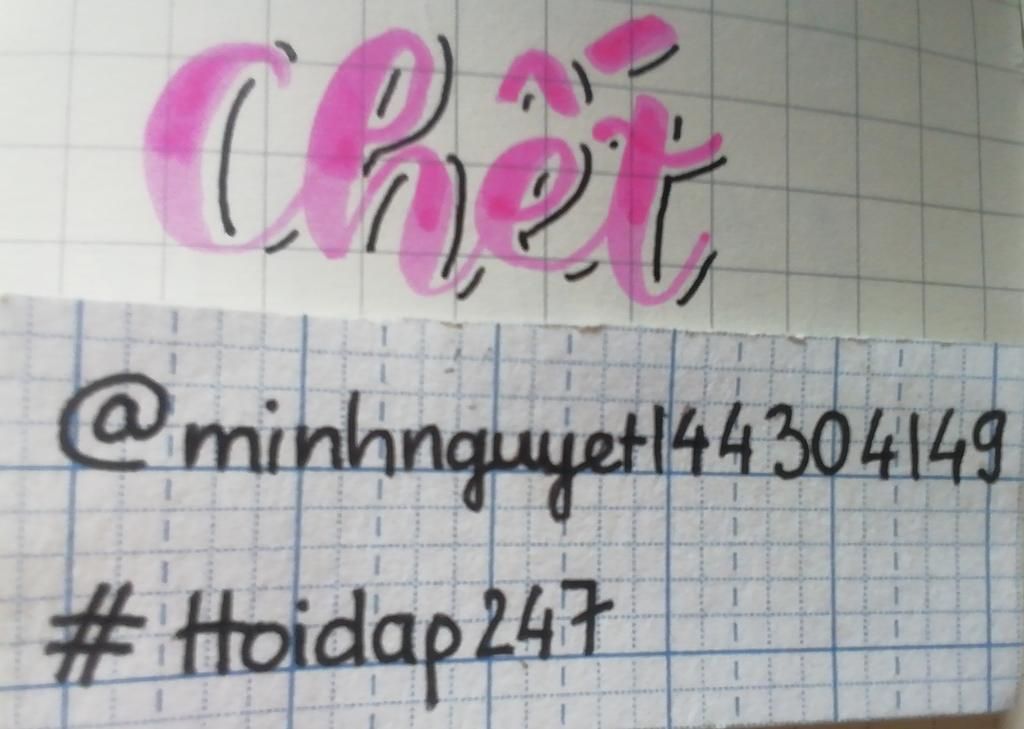 Chết
@minhnguyet144304149
#Hoidap247